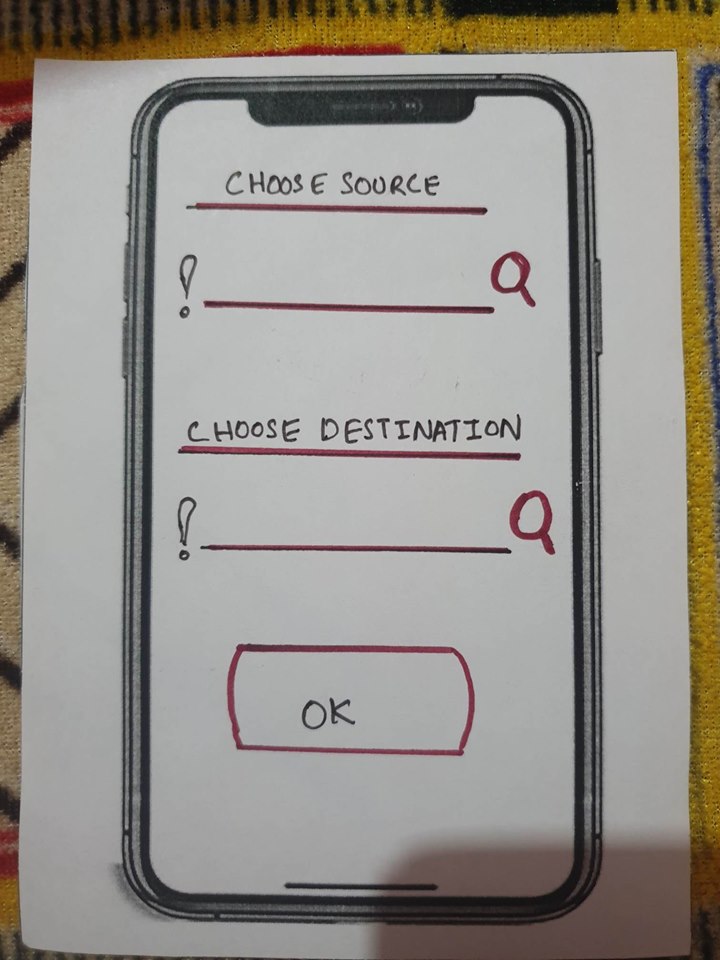 CHOOSE SOURCE
!
CHOOSE DESTINATION
!
OK